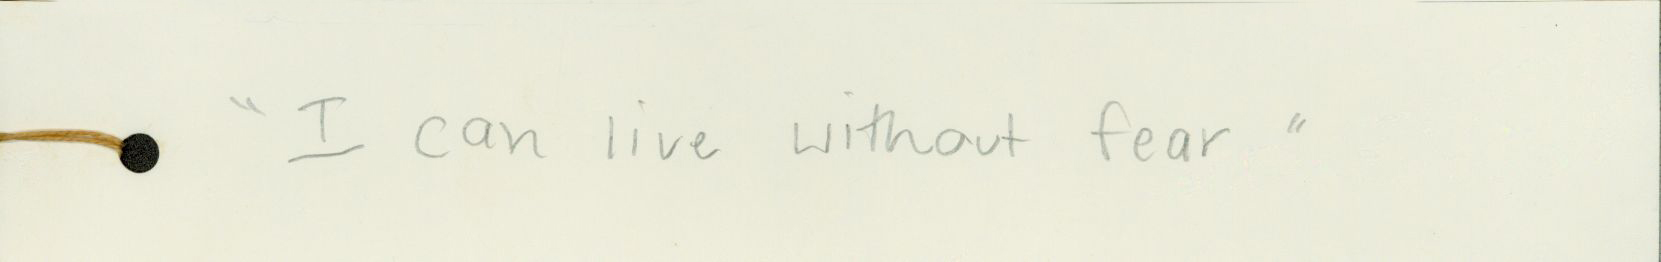 "I can live without fear"